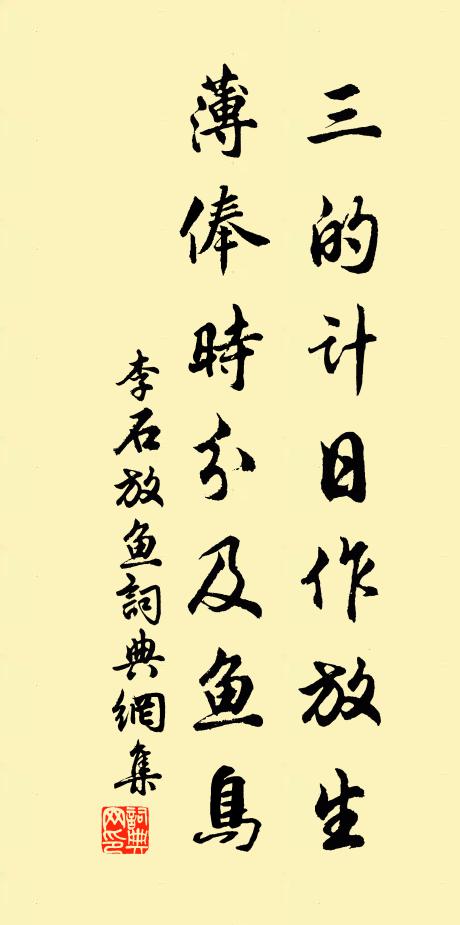 三的计日作放生
薄俸時分及鱼鳥
李石放鱼詞典網集
詞典网印